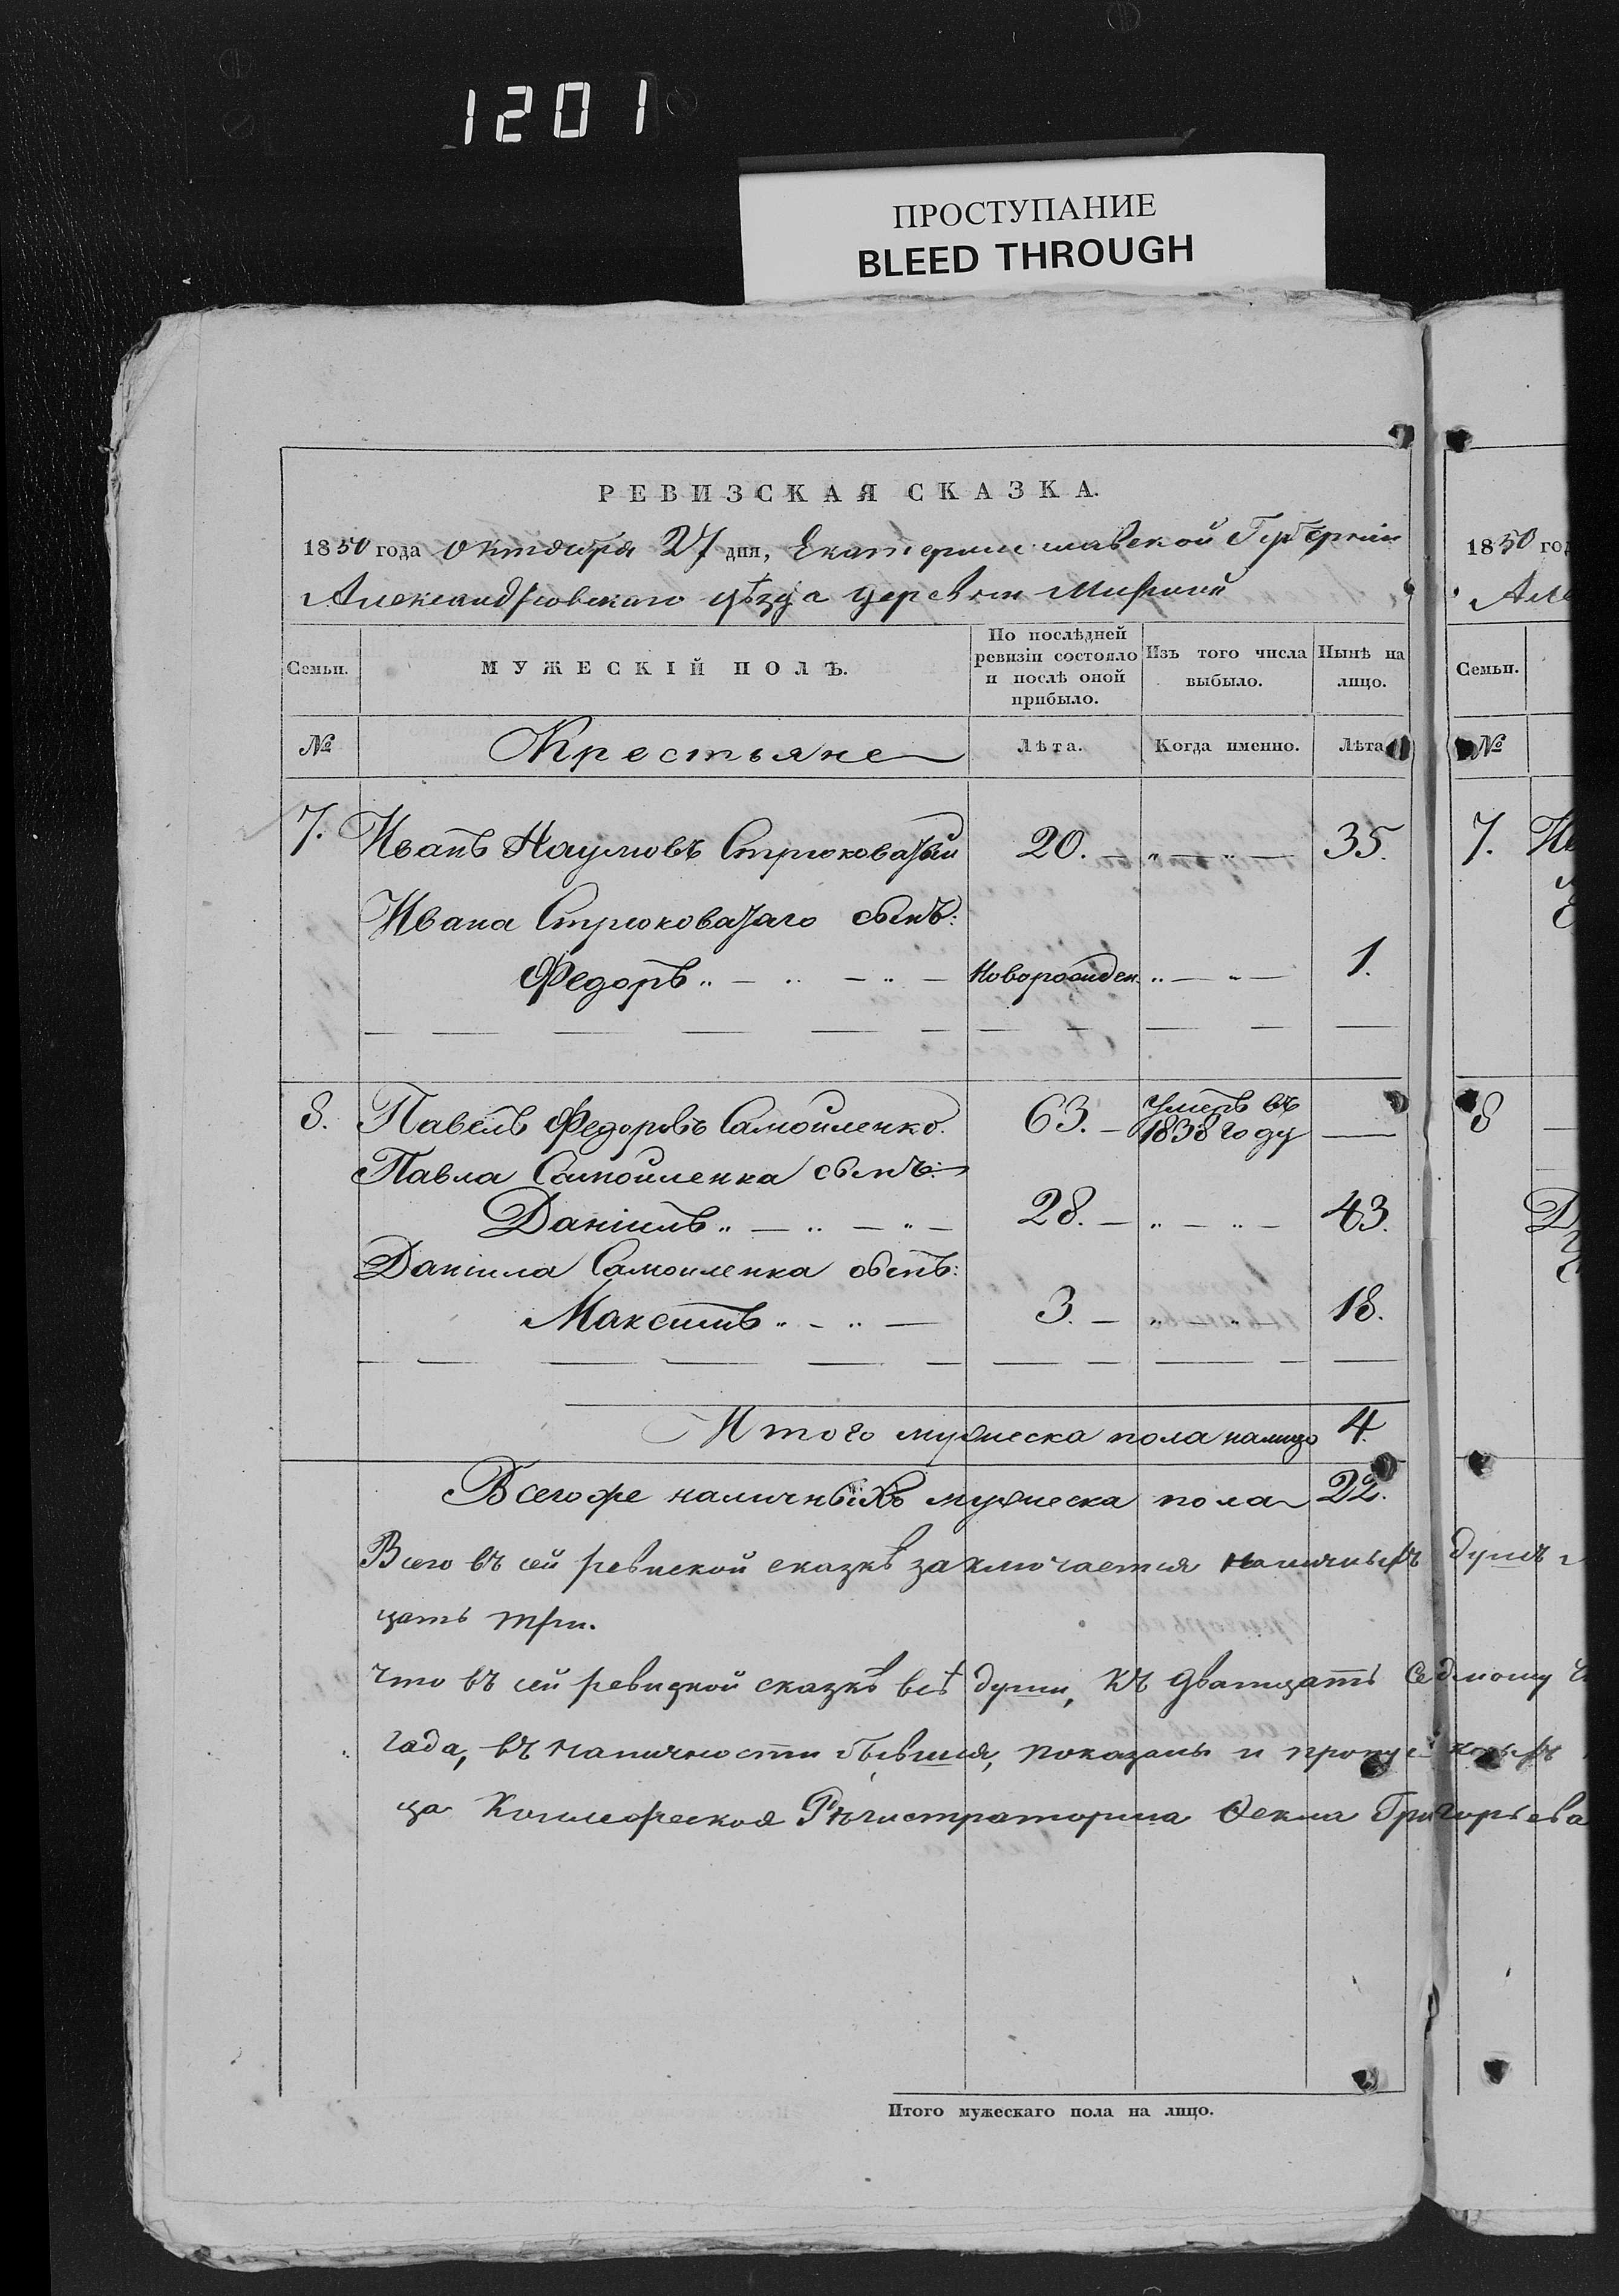 1201
ПРОСТУПАНИЕ
BLEED THROUGH
РЕВИЗСКАЯ СКАЗКА.
1850 года Октября 27 дня, Екатеринославской Губерніи
Александровскаго уѣзда деревни Мирной
Семьи. МУЖЕСКІЙ ПОЛЪ. По послѣдней ревизіи состояло и послѣ оной прибыло. Изъ того числа выбыло. Нынѣ на лицо.
№ Крестьяне Лѣта. Когда именно. Лѣта
7. Иванъ Наумовъ Стрюковатый 20. 35.
Ивана Стрюковатаго сынъ:
Федоръ Новорожден. 1.
8. Павелъ Федоровъ Самойленко. 63. Умеръ въ 1838 году
Павла Самойленка сынъ:
Даніилъ 28. 43.
Даніила Самоиленка сынъ:
Максимъ 3. 18.
Итого мужеска пола налицо 4.
Всего же наличныхъ мужеска пола 22.
Всего въ сей ревиской сказкѣ заключается наличныхъ душъ
цать три.
что въ сей ревизкой сказкѣ всѣ души, къ дватцать седмому
года, въ наличности бывшия, показаны и
ца Коллежская Регистраторша Фекла Григорьева
Итого мужескаго пола на лицо.
1850 го
Але
Семьи.
№
7.
8